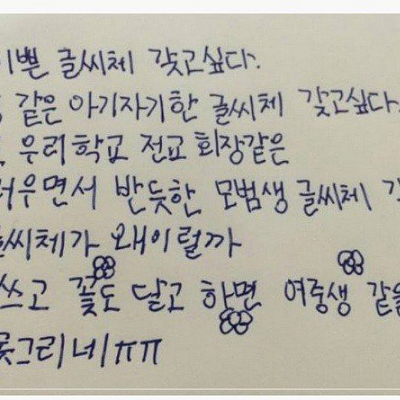 이쁜 글씨체 갖고싶다.
같은 아기자기한 글씨체 갖고싶다.
우리학교 전교 회장같은
러우면서 반듯한 모범생 글씨체
씨체가 왜이럴까
쓰고 꽃도 달고 하면 여중생 같을
못그리네ㅠㅠ